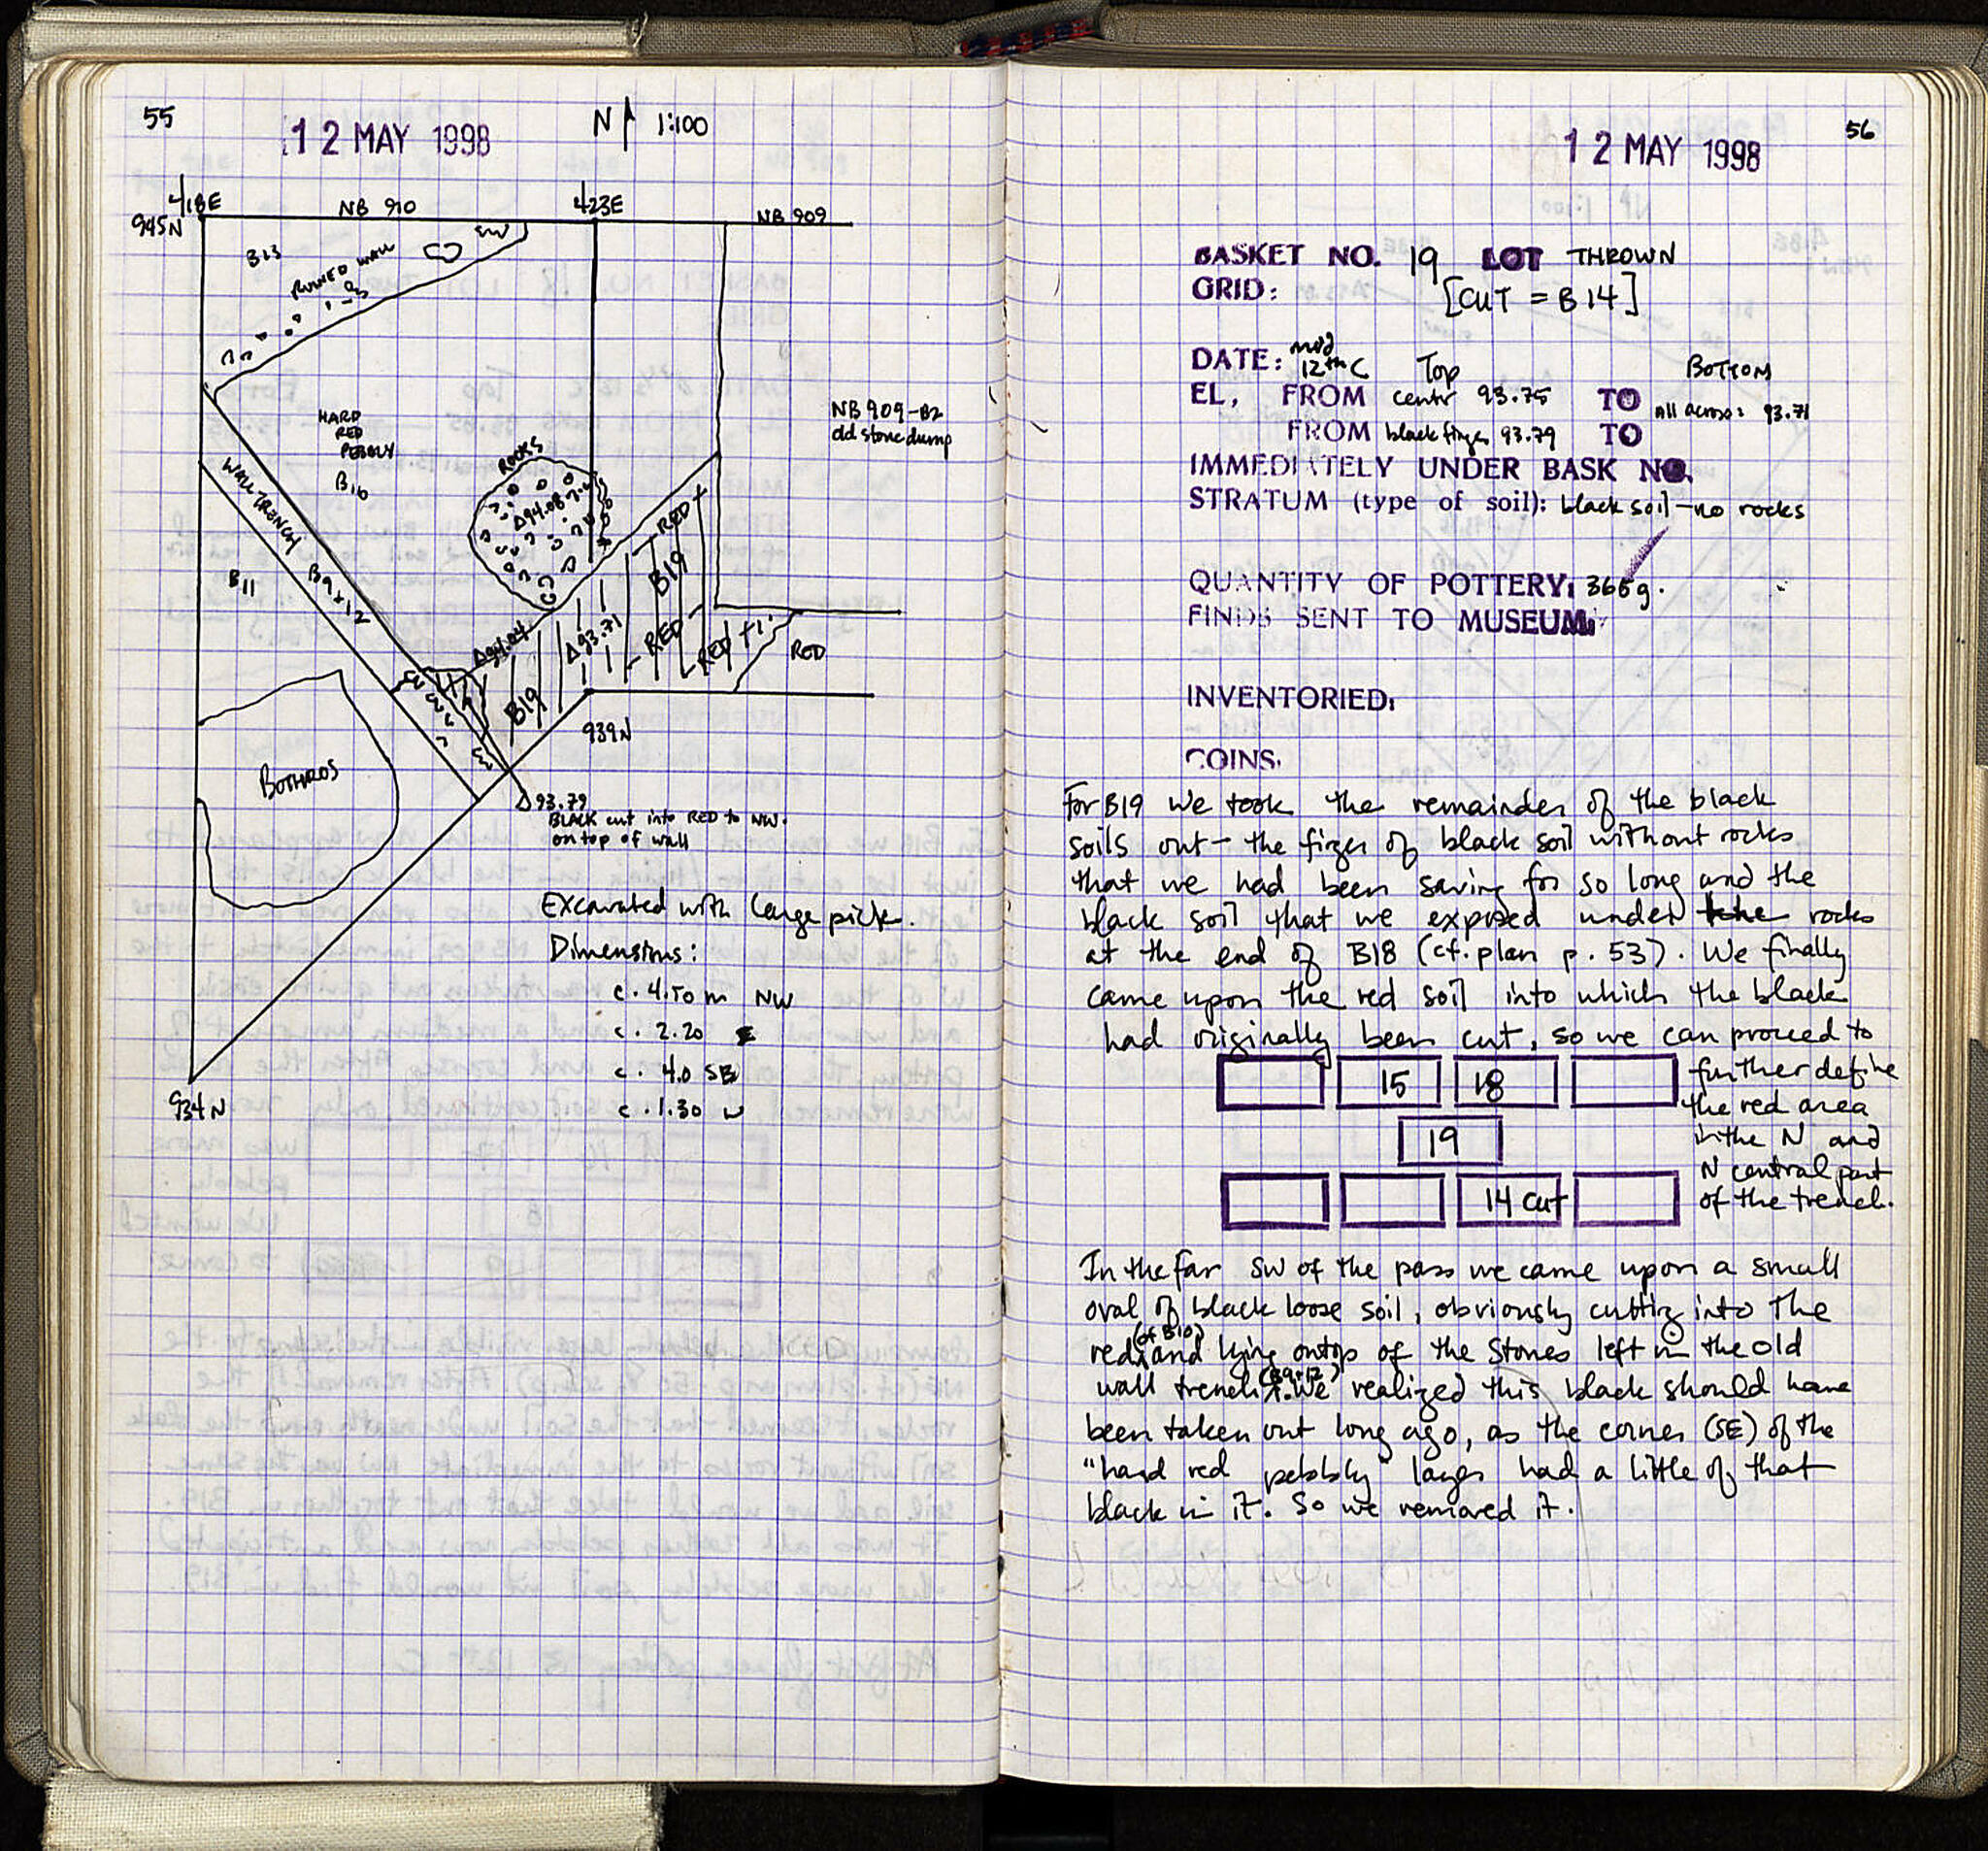 55
12 MAY 1998
N 1:100
418E
NB 910
423E
NB 909
945N
B13
SW
RUINED WALL
HARD
RED
PEBBLY
B10
NB 909-B2
old stone dump
ROCKS
Δ94.08
WALL TRENCH
B9+12
B11
RED
B19
Δ94.04
Δ93.71
RED
RED
RED
B19
939N
BOTHROS
Δ93.79
BLACK cut into RED to NW.
on top of wall
Excavated with large pick.
Dimensions:
c. 4.50 m NW
c. 2.20 E
c. 4.0 SE
c. 1.30 W
934N
56
12 MAY 1998
BASKET NO. 19 LOT THROWN
GRID: [CUT = B14]
DATE: mid 12th C Top BOTTOM
EL, FROM center 93.75 TO All across: 93.71
FROM black finger 93.79 TO
IMMEDIATELY UNDER BASK NO.
STRATUM (type of soil): black soil – no rocks
QUANTITY OF POTTERY: 365g.
FINDS SENT TO MUSEUM:
INVENTORIED:
COINS.
For B19 we took the remainder of the black
soils out – the finger of black soil without rocks
that we had been saving for so long and the
black soil that we exposed under the rocks
at the end of B18 (cf. plan p. 53). We finally
came upon the red soil into which the black
had originally been cut, so we can proceed to
further define
the red area
in the N and
N central part
of the trench.
15 18
19
14 cut
In the far SW of the pass we came upon a small
oval of black loose soil, obviously cutting into the
red (of B10) and lying ontop of the stones left in the old
wall trench (B9+12). We realized this black should have
been taken out long ago, as the corner (SE) of the
"hard red pebbly" layer had a little of that
black in it. So we removed it.